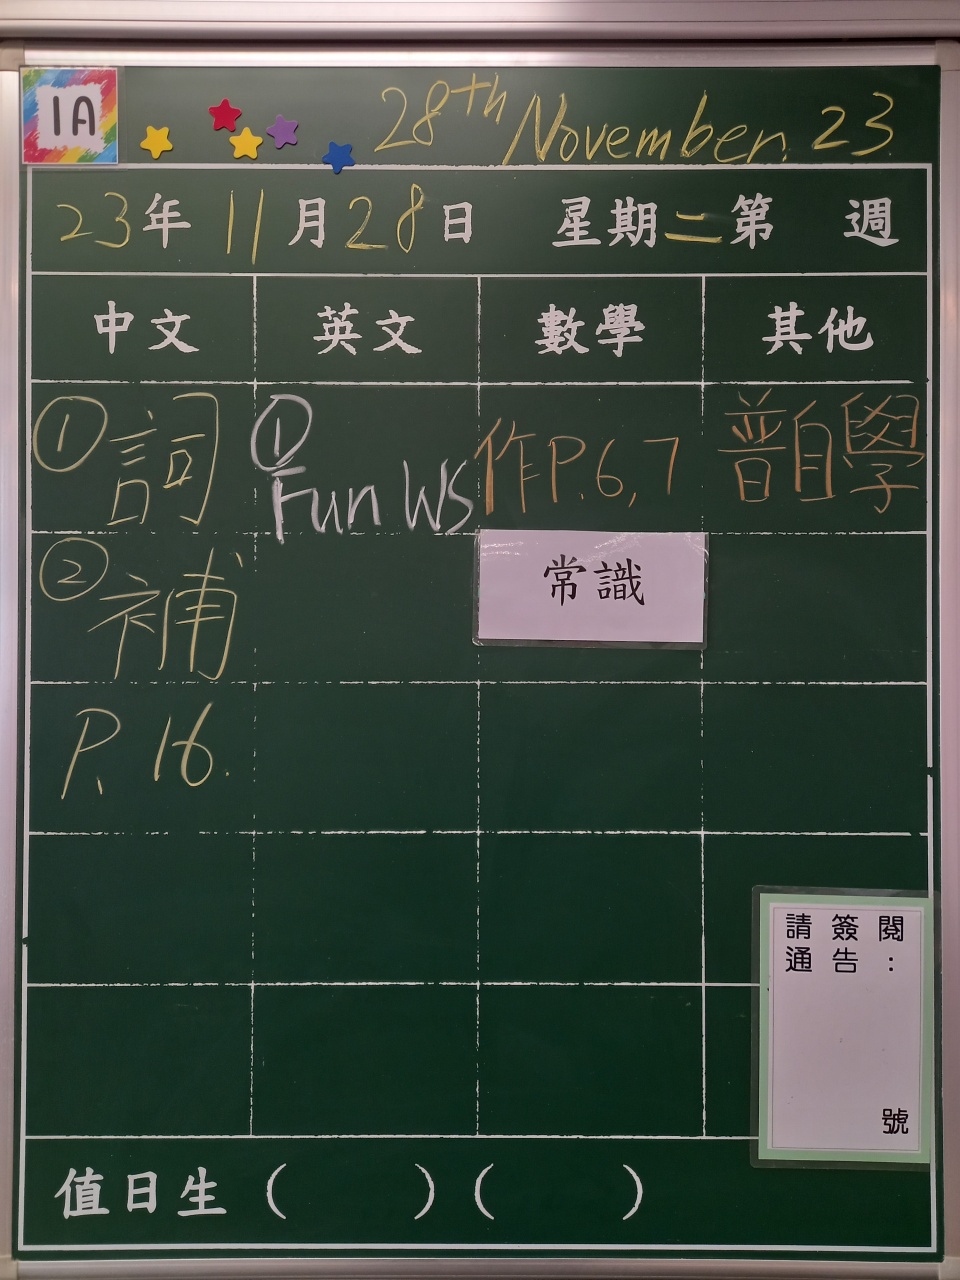 1A
28th November. 23
23年11月28日 星期二第 週
中文 英文 數學 其他
① 詞
① Fun WS
作P.6,7
普自學
② 補
常識
P. 16.
請簽閱
通告:
號
值日生 ( ) ( )